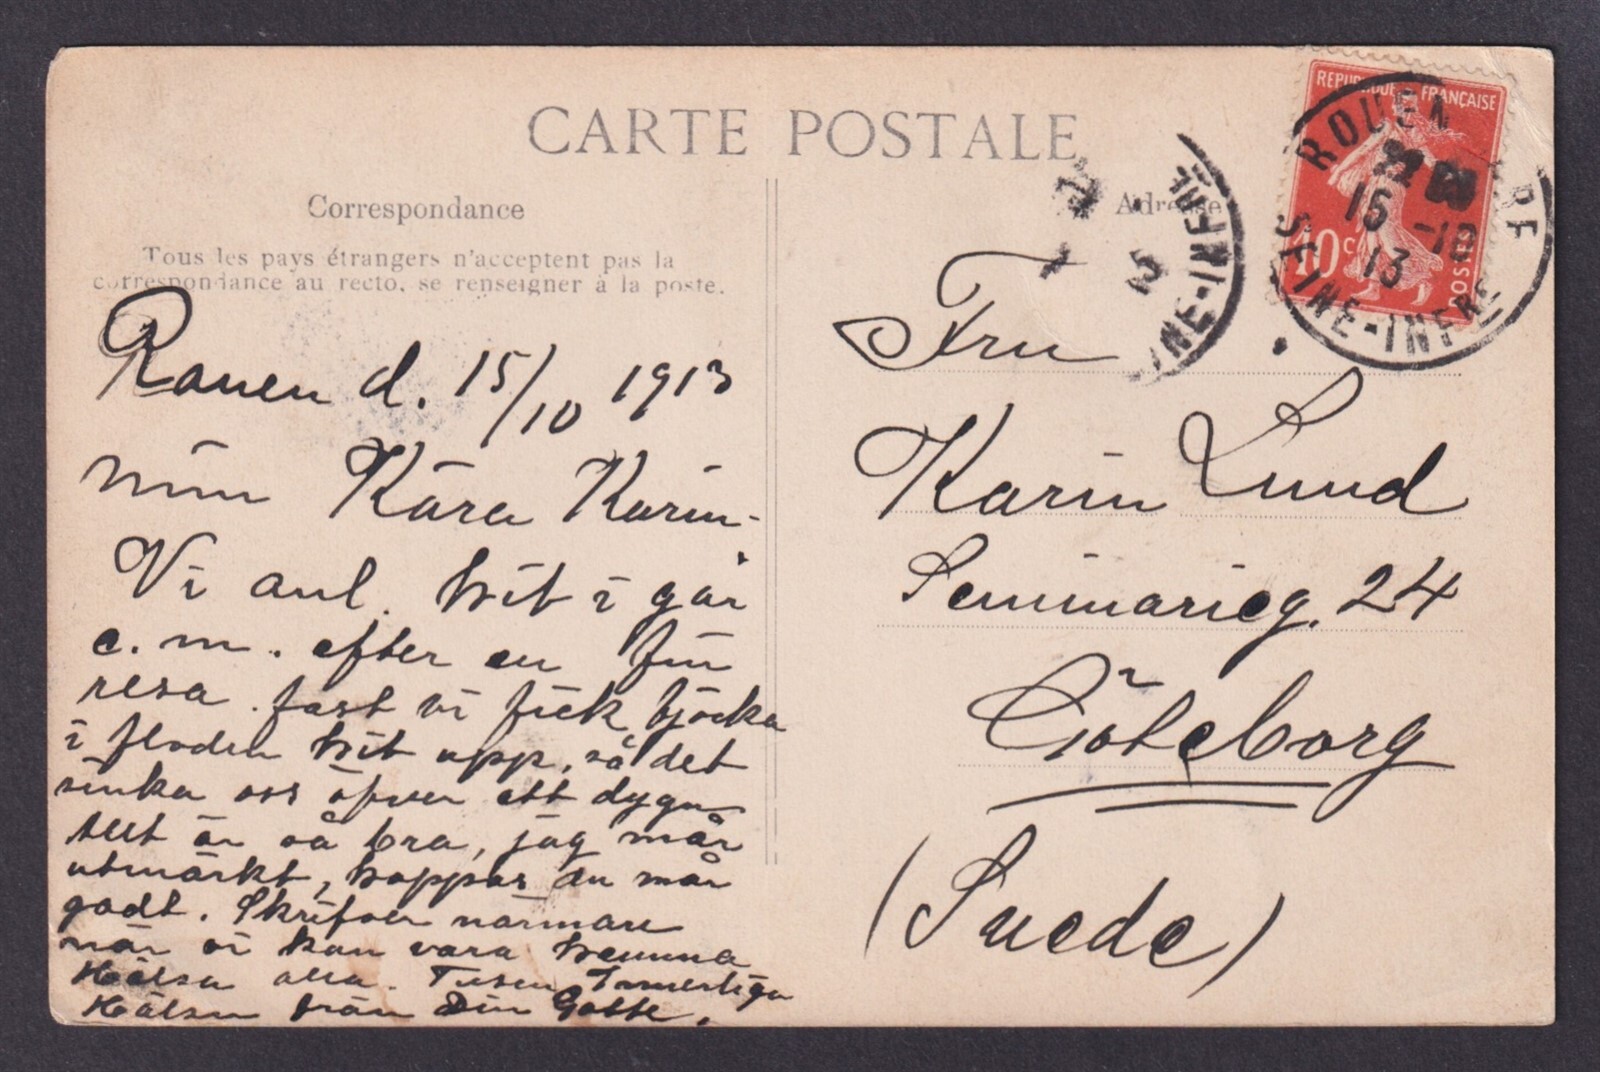 CARTE POSTALE
Correspondance
Tous les pays étrangers n'acceptent pas la
correspondance au recto, se renseigner à la poste.
Rouen d. 15/10 1913
min Kära Karin-
Vi anl. hit i går
e. m. efter en fin
resa. fast vi fick tjocka
i floden hit upp, så det
sinka oss öfver ett dygn
allt är så bra, jag mår
utmärkt, hoppas du mår
godt. Skrifver närmare
när vi kan vara hemma
Hälsa alla. Tusen Innerliga
Hälsn från Din Gotte.
Adresse
Fru
Karin Lund
Seminarieg. 24
Göteborg
(Suede)
REPUBLIQUE FRANÇAISE
10c POSTES
ROUEN
15 -10
13
SEINE-INFRE
INE-INFRE